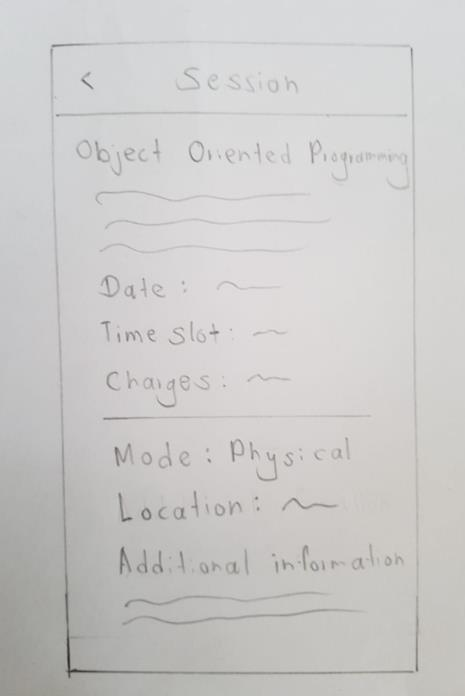 < Session
Object Oriented Programming
Date :
Time slot :
Charges :
Mode : Physical
Location :
Additional information